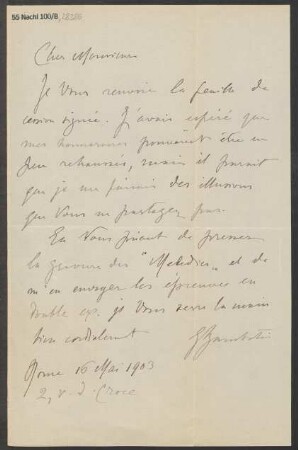 55 Nachl 100/B,
Cher Monsieur
Je Vous renvoie la feuille de
cession signée. J'avais espéré que
mes honoraires pouvaient être un
peu rehaussés, mais il parait
que je me faisais des illusions
que Vous ne partagez pas.
En Vous priant de presser
la gravure des "Melodies" et de
m'en envoyer les épreuves en
double ex. je Vous serre la main
bien cordialement
GSgambati
Rome 16 Mai 1903
2, v. d. Croce